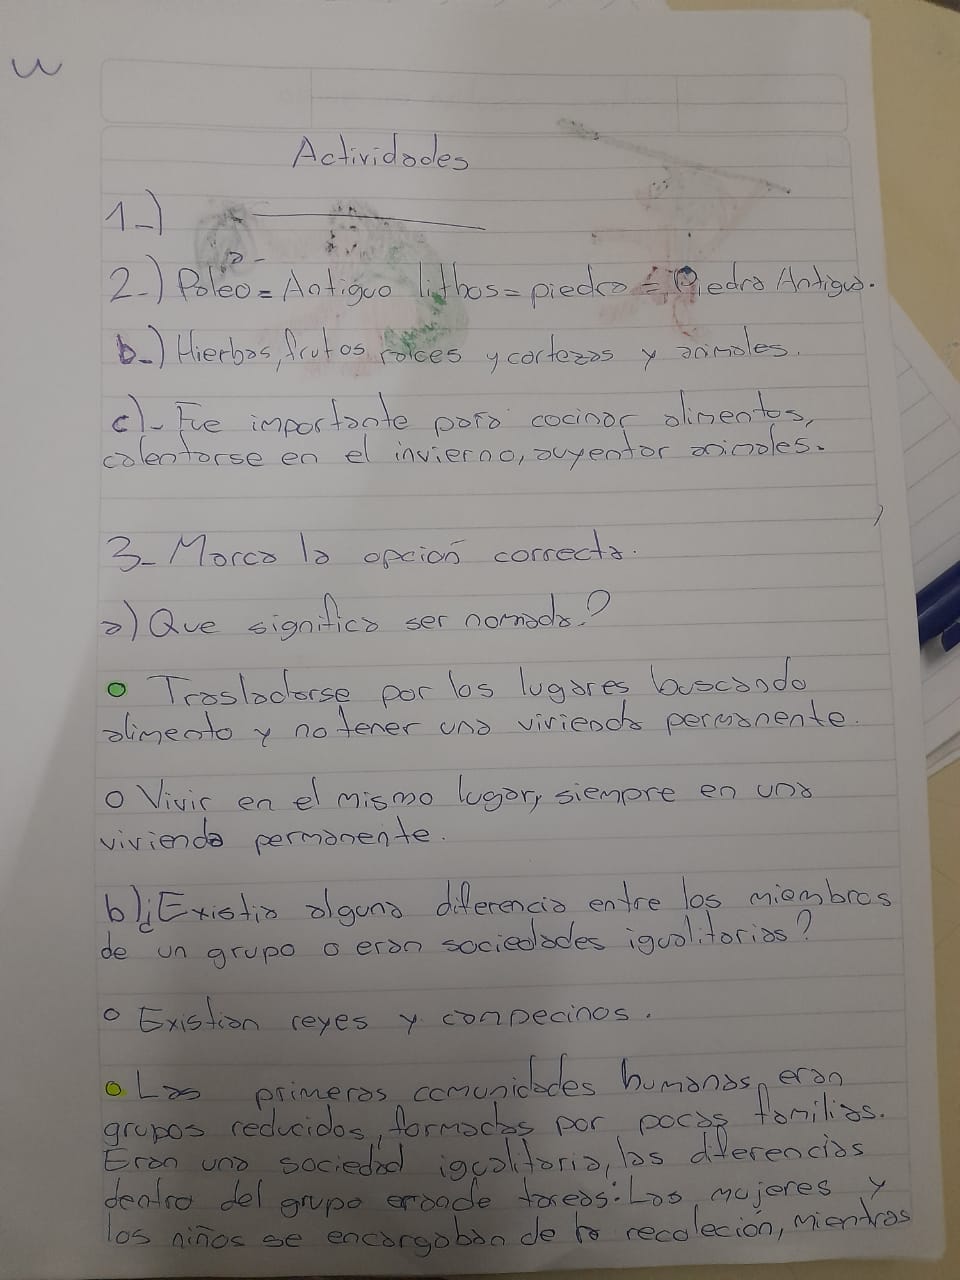 Actividades
1-)
2-) Paleo = Antiguo lithos = piedra = Piedra Antigua.
b-) Hierbas, frutos, raíces y cortezas y animales.
c)- Fue importante para cocinar alimentos,
calentarse en el invierno, auyentar animales.
3- Marca la opción correcta.
a) Que significa ser nomada?
o Trasladarse por los lugares buscando
alimento y no tener una vivienda permanente.
o Vivir en el mismo lugar, siempre en una
vivienda permanente.
b) ¿Existia alguna diferencia entre los miembros
de un grupo o eran sociedades igualitarias?
o Existian reyes y conpecinos.
o Las primeras comunidades humanas, eran
grupos reducidos, formadas por pocas familias.
Eran una sociedad igualitaria, las diferencias
dentro del grupo eran de tareas: Las mujeres y
los niños se encargaban de la recoleción, mientras